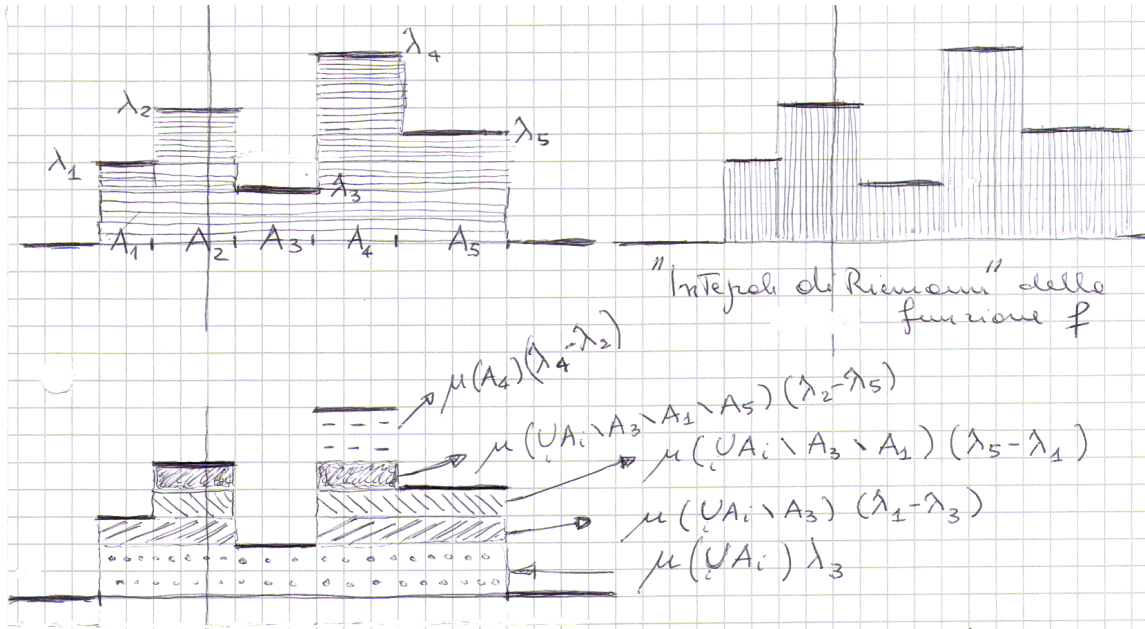 λ₄
λ₂
λ₅
λ₁
λ₃
A₁ A₂ A₃ A₄ A₅
"Integrale di Riemann" della
funzione f
μ(A₄)(λ₄-λ₂)
μ(∪ᵢAᵢ\A₃\A₁\A₅)(λ₂-λ₅)
μ(∪ᵢAᵢ\A₃\A₁)(λ₅-λ₁)
μ(∪ᵢAᵢ\A₃)(λ₁-λ₃)
μ(∪ᵢAᵢ)λ₃